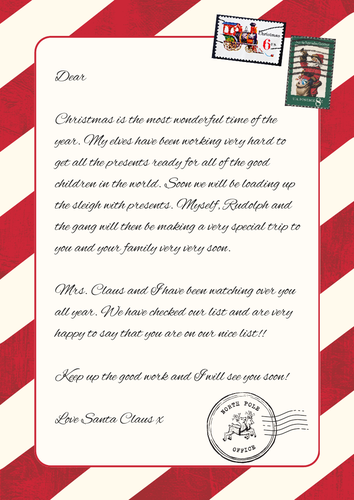 Christmas
6 cts
8
Dear
Christmas is the most wonderful time of the
year. My elves have been working very hard to
get all the presents ready for all of the good
children in the world. Soon we will be loading up
the sleigh with presents. Myself, Rudolph and
the gang will then be making a very special trip to
you and your family very very soon.
Mrs. Claus and I have been watching over you
all year. We have checked our list and are very
happy to say that you are on our nice list!!
Keep up the good work and I will see you soon!
Love Santa Claus x
NORTH POLE
OFFICE